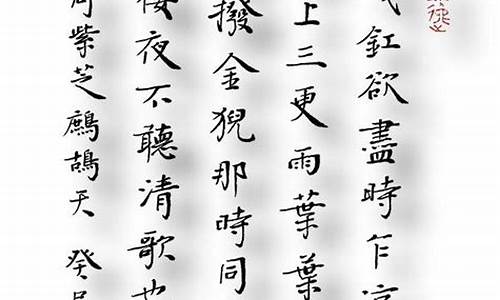 釭欲盡時乍涼
上三更雨葉葉
撥金猊那時同
樓夜不聽清歌也
周紫芝鷓鴣天 癸